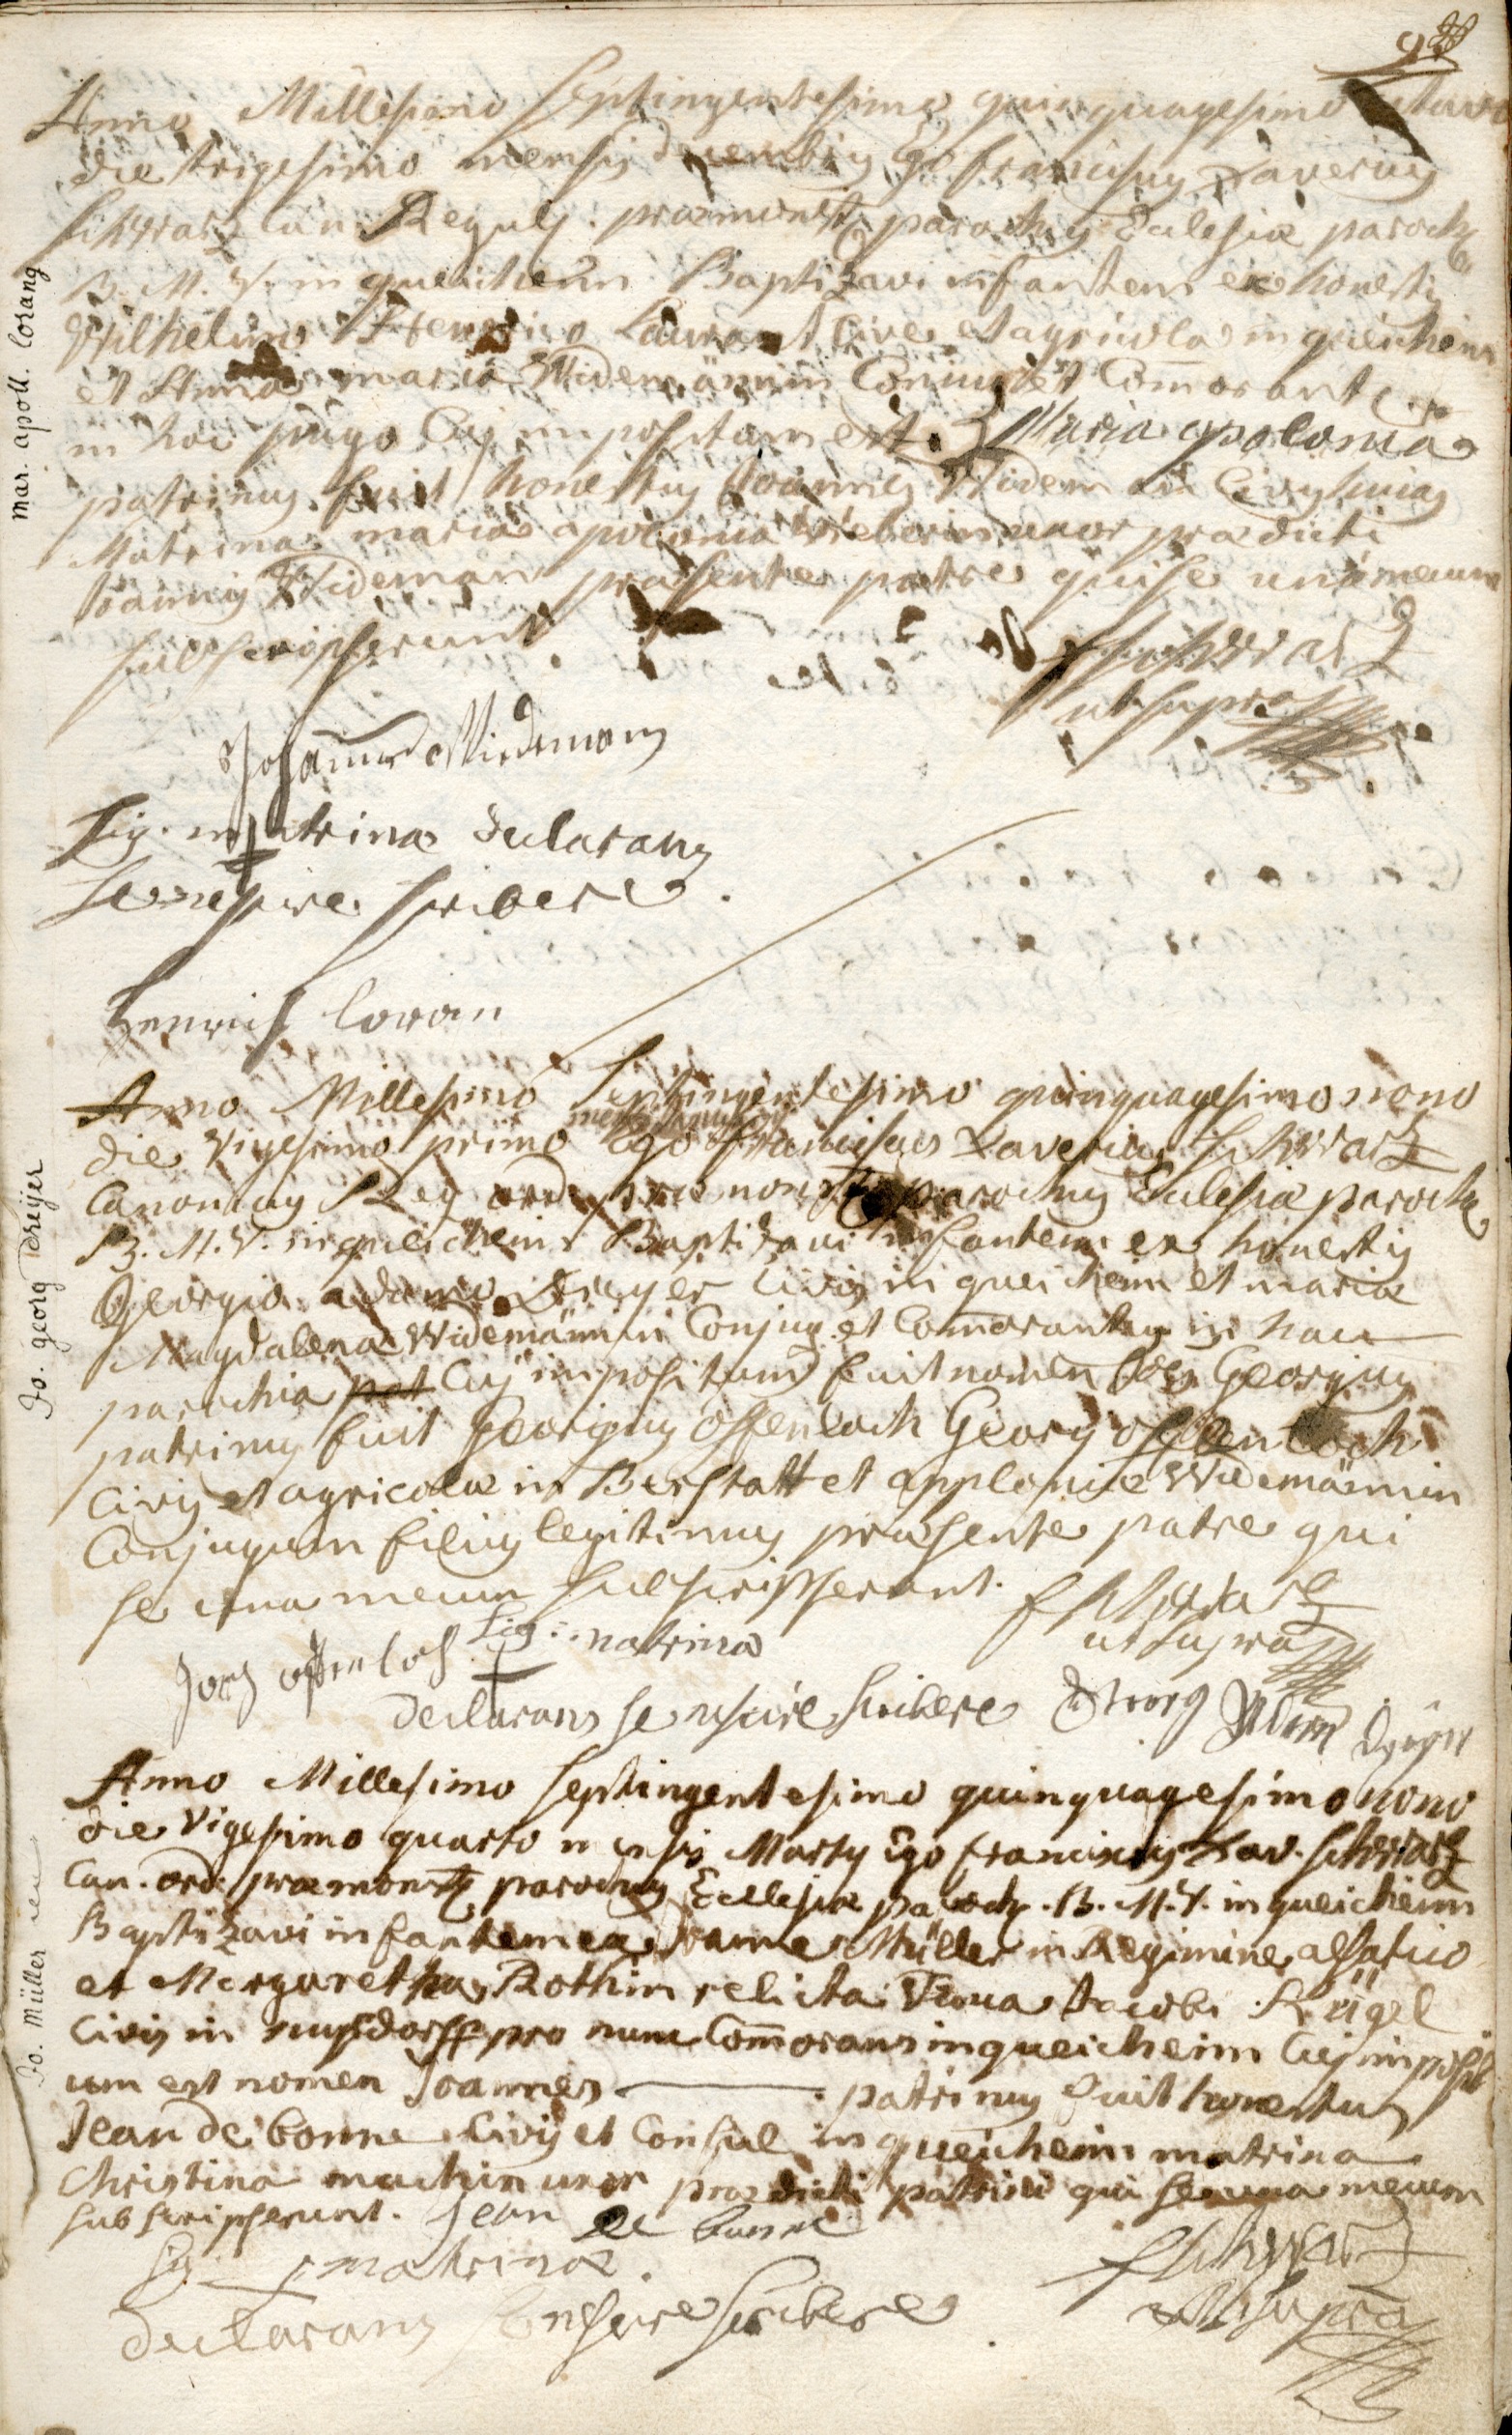 Anno Millesimo septingentesimo quinquagesimo octavo
die trigesimo mensis decembris Ego franciscus Xaverius
schwartz Can. Regul. praemonst. parochus Ecclesiae paroch.
B. M. V. in queicheim Baptizavi infantem ex honestis
Wilhelmo Henrico Laurant Cive et agricola in queicheim
et Anna maria Widemännin Conjug. et Com̄orant
in hoc pago Cuj impositum est Maria apolonia
patrinus fuit honestus Joannes Widem an Civis hujas
Matrina maria apolonia Weberin uxor praedicti
Joannis Wideman praesente patre qui se una mecum
subscripserunt
fschwartz
ut supra
Johannes Widemann
Sig. matrina declarans
se nescire scribere.
Henrich loran
mar. apoll. lorang
Anno Millesimo Septingentesimo quinquagesimo nono
die Vigesimo primo Ego franciscus Xaverius Schwartz
Canonicus Reg ord. praemonst. parochus Ecclesiae paroch.
B. M. V. in queicheim Baptizavi infantem ex honestis
Georgio adamo Dreyer Civis in queicheim et maria
Magdalena Widemännin Conjug. et Com̄orantes in hac
parochia pat Cuj impositum fuit nomen Joes Georgius
patrinus fuit Georgius Offenloch Georgÿ offenloch
Civis et agricolae in Berstatt et applonia Widemännin
Conjugum filius legitimus praesente patre qui
se una mecum subscripserunt.
f schwartz
ut supra
Jorg offenloch Sig. matrina
declarans se nescire scribere Georg Adam dreyer
Jo. georg dreÿer
Anno Millesimo septingentesimo quinquagesimo nono
die Vigesimo quarto mensis Martÿ Ego franciscus Xav. schwartz
Can. ord. praemonst. parochus Ecclesiae paroch. B. M. V. in queicheim
Baptizavi infantem ex Joanne Müller in Regimine alsatico
et Margaretha Rothin relicta Vidua Jacobi Kügel
Civis in nusdorff pro nunc Com̄orans in queicheim Cuj imposit
um est nomen Joannes. patrinus fuit honestus
Jean de bonne Civis et Consul in queicheim matrina
Christina machin uxor praedicti patrini qui se una mecum
subscripserunt. Jean de bonne
Sig matrinae.
declarans se nescire scribere
fschwartz
ut supra
Jo. Müller